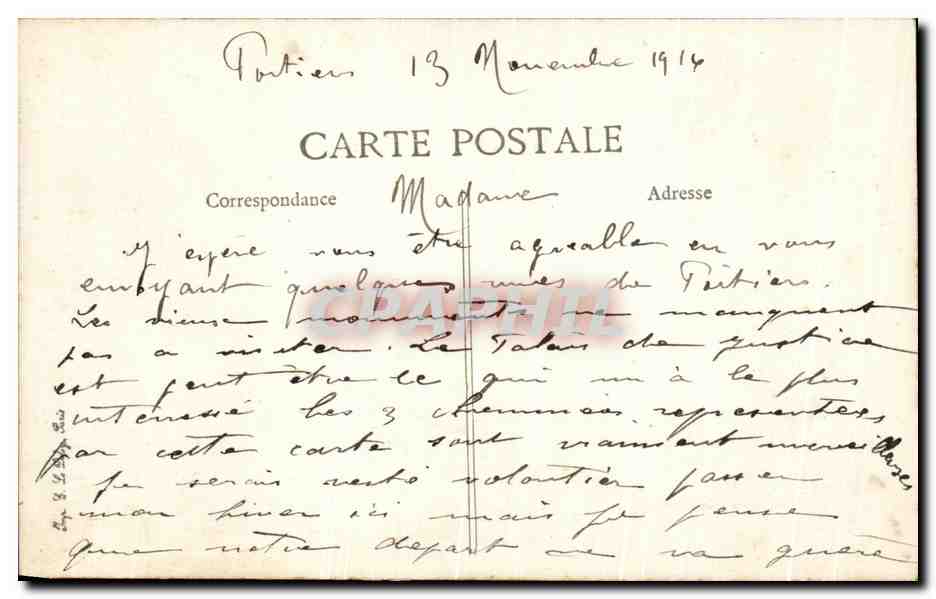 Poitiers 13 Novembre 1914
CARTE POSTALE
Correspondance
Adresse
Madame
J'espère vous être agreable en vous
envoyant quelques vues de Poitiers.
Les vieux monuments ne manquent
pas a visiter. Le Palais de Justice
est peut être ce qui m'a le plus
interessé les 3 cheminées representees
par cette carte sont vraiment merveilleuses
Je serais resté volontier passer
mon hiver ici mais je pense
que notre depart ne va guère
CPAPHIL